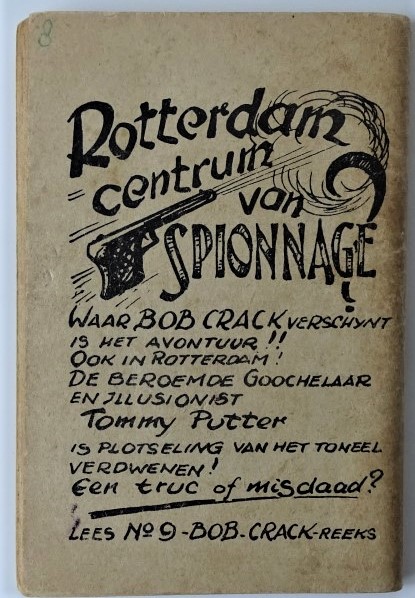 8
Rotterdam
centrum
van
SPIONNAGE?
WAAR BOB CRACK VERSCHYNT
IS HET AVONTUUR!!
OOK IN ROTTERDAM!
DE BEROEMDE GOOCHELAAR
EN ILLUSIONIST
Tommy Putter
IS PLOTSELING VAN HET TONEEL
VERDWENEN!
Een truc of misdaad?
LEES No 9-BOB-CRACK-REEKS